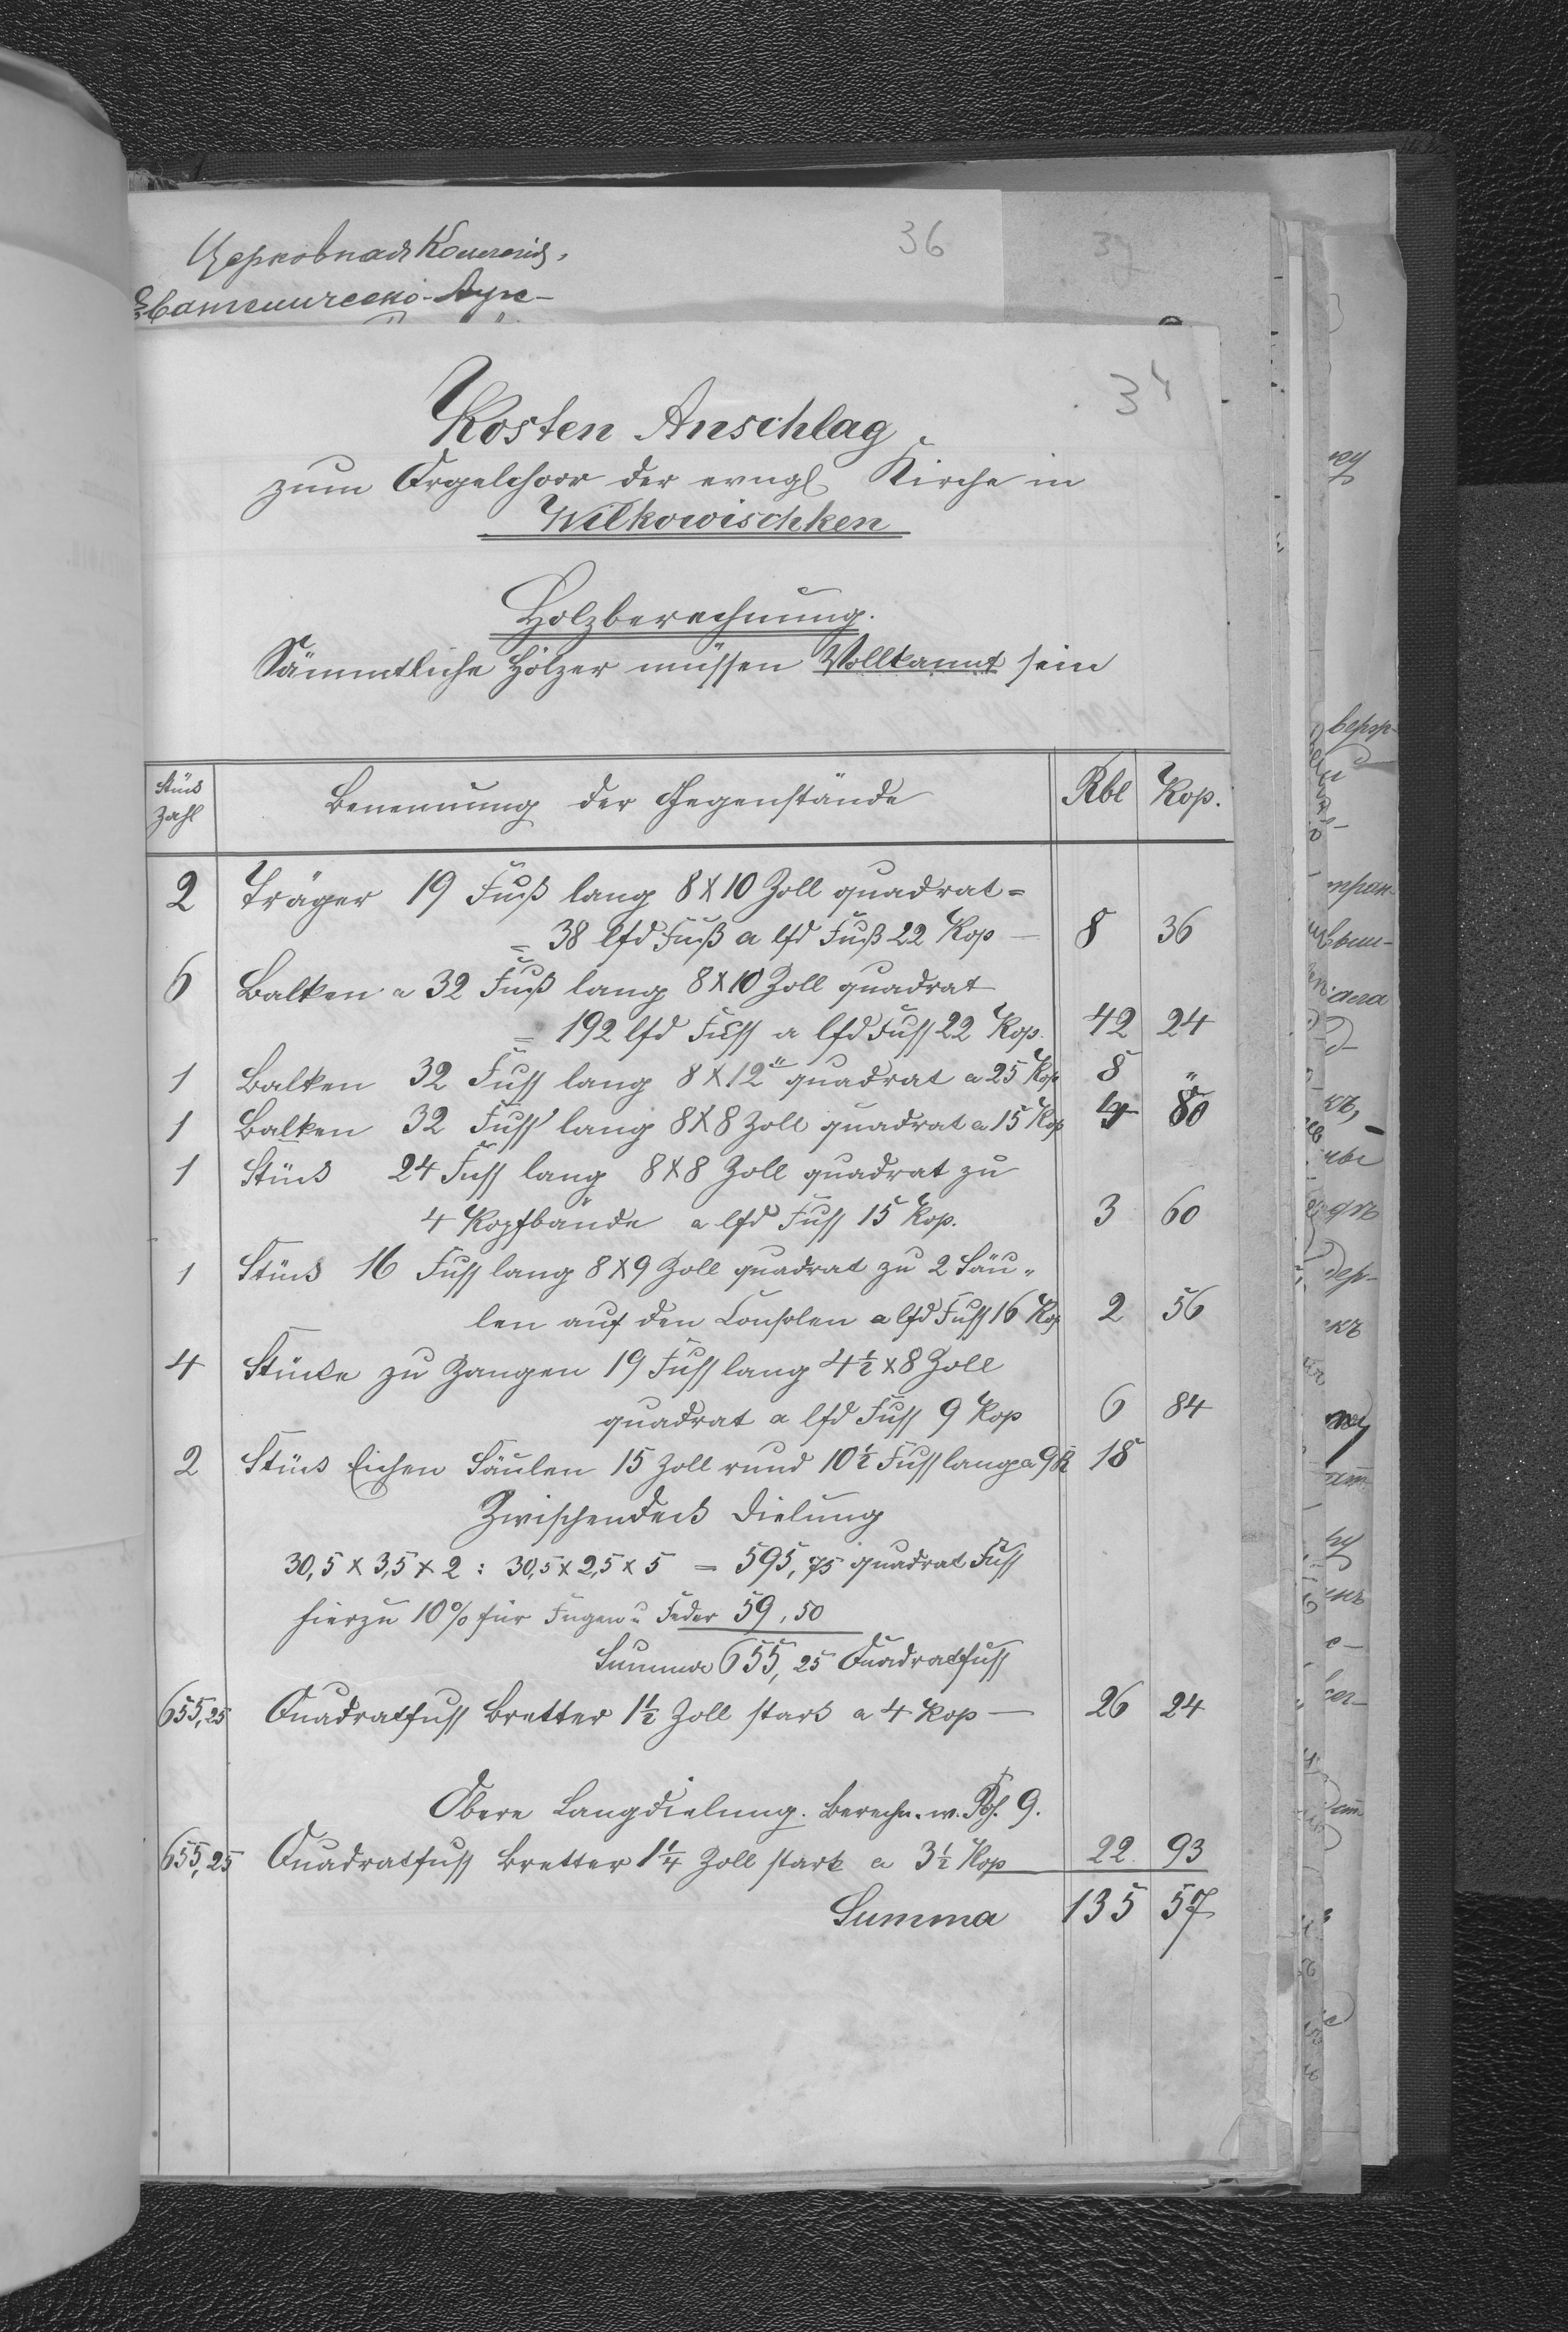 Церковная Коллегія,
Евангелическо-Аугс-
36
37
34
Kosten Anschlag
zum Orgelchoor der evngl Kirche in
Wilkowischken
Holzberechnung.
Sämmtliche Hölzer müssen Vollkannt sein
Stück Zahl | Benennung der Gegenstände | Rbl | Kop.
2 Träger 19 Fuß lang 8x10 Zoll quadrat =
= 38 lfd Fuß a lfd Fuß 22 Kop — 8 36
6 Balken a 32 Fuß lang 8x10 Zoll quadrat
= 192 lfd Fuss a lfd Fuss 22 Kop. 42 24
1 Balken 32 Fuss lang 8x12" quadrat a 25 Kop 8 "
1 Balken 32 Fuss lang 8x8 Zoll quadrat a 15 Kop 4 80
1 Stück 24 Fuss lang 8x8 Zoll quadrat zu
4 Kopfbände a lfd Fuss 15 Kop. 3 60
1 Stück 16 Fuss lang 8x9 Zoll quadrat zu 2 Säu-
len auf den Consolen a lfd Fuss 16 Kop 2 56
4 Stücke zu Zangen 19 Fuss lang 4½ x 8 Zoll
quadrat a lfd Fuss 9 Kop 6 84
2 Stück Eichen Säulen 15 Zoll rund 10½ Fuss lang a 9 R 18
Zwischendeck Dielung
30,5 x 3,5 x 2 : 30,5 x 2,5 x 5 = 595,75 quadrat Fuss
hierzu 10% für Fugen u Feder 59,50
Summa 655,25 Quadratfuss
655,25 Quadratfuss Bretter 1½ Zoll stark a 4 Kop — 26 24
Obere Langdielung. Berechn. w. Pos. 9.
655,25 Quadratfuss Bretter 1¼ Zoll stark a 3½ Kop 22 93
Summa 135 57